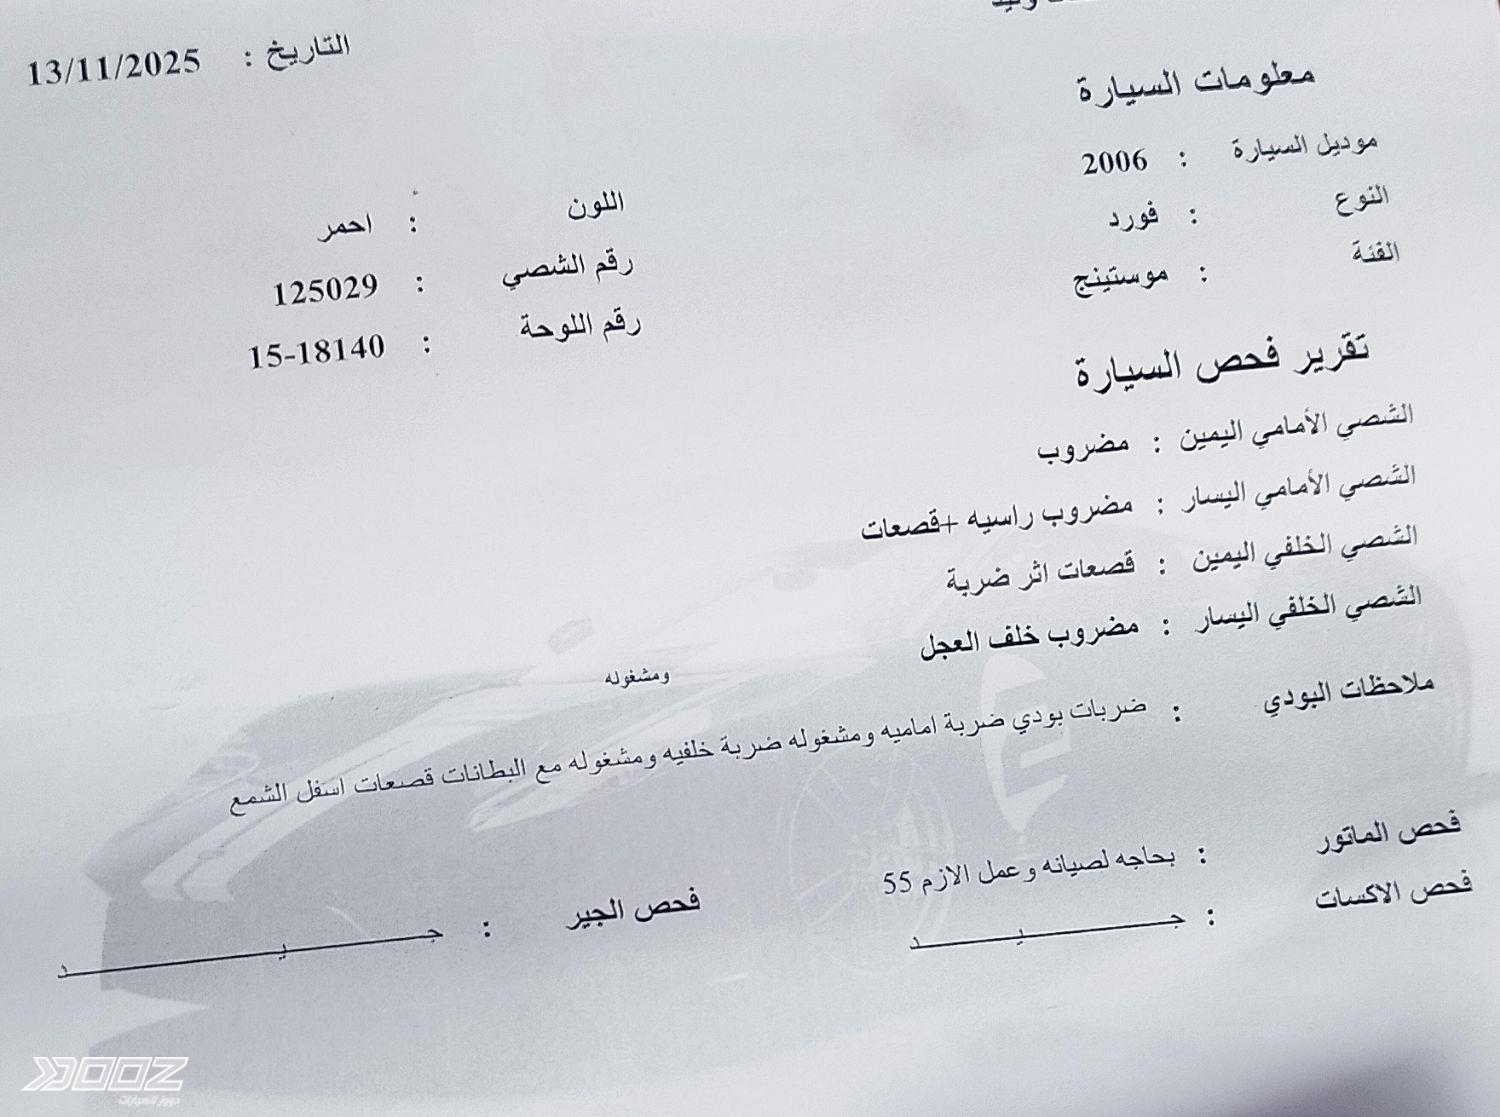 التاريخ : 13/11/2025
معلومات السيارة
موديل السيارة : 2006
النوع : فورد
الفئة : موستينج
اللون : احمر
رقم الشصي : 125029
رقم اللوحة : 15-18140
تقرير فحص السيارة
الشصي الأمامي اليمين : مضروب
الشصي الأمامي اليسار : مضروب راسيه +قصعات
الشصي الخلفي اليمين : قصعات اثر ضربة
الشصي الخلفي اليسار : مضروب خلف العجل
ومشغوله
ملاحظات البودي : ضربات بودي ضربة اماميه ومشغوله ضربة خلفيه ومشغوله مع البطانات قصعات اسفل الشمع
فحص الماتور : بحاجه لصيانه وعمل الازم 55
فحص الاكسات : جـــيـــد
فحص الجير : جـــيـــد
DOOZ
دووز للسيارات